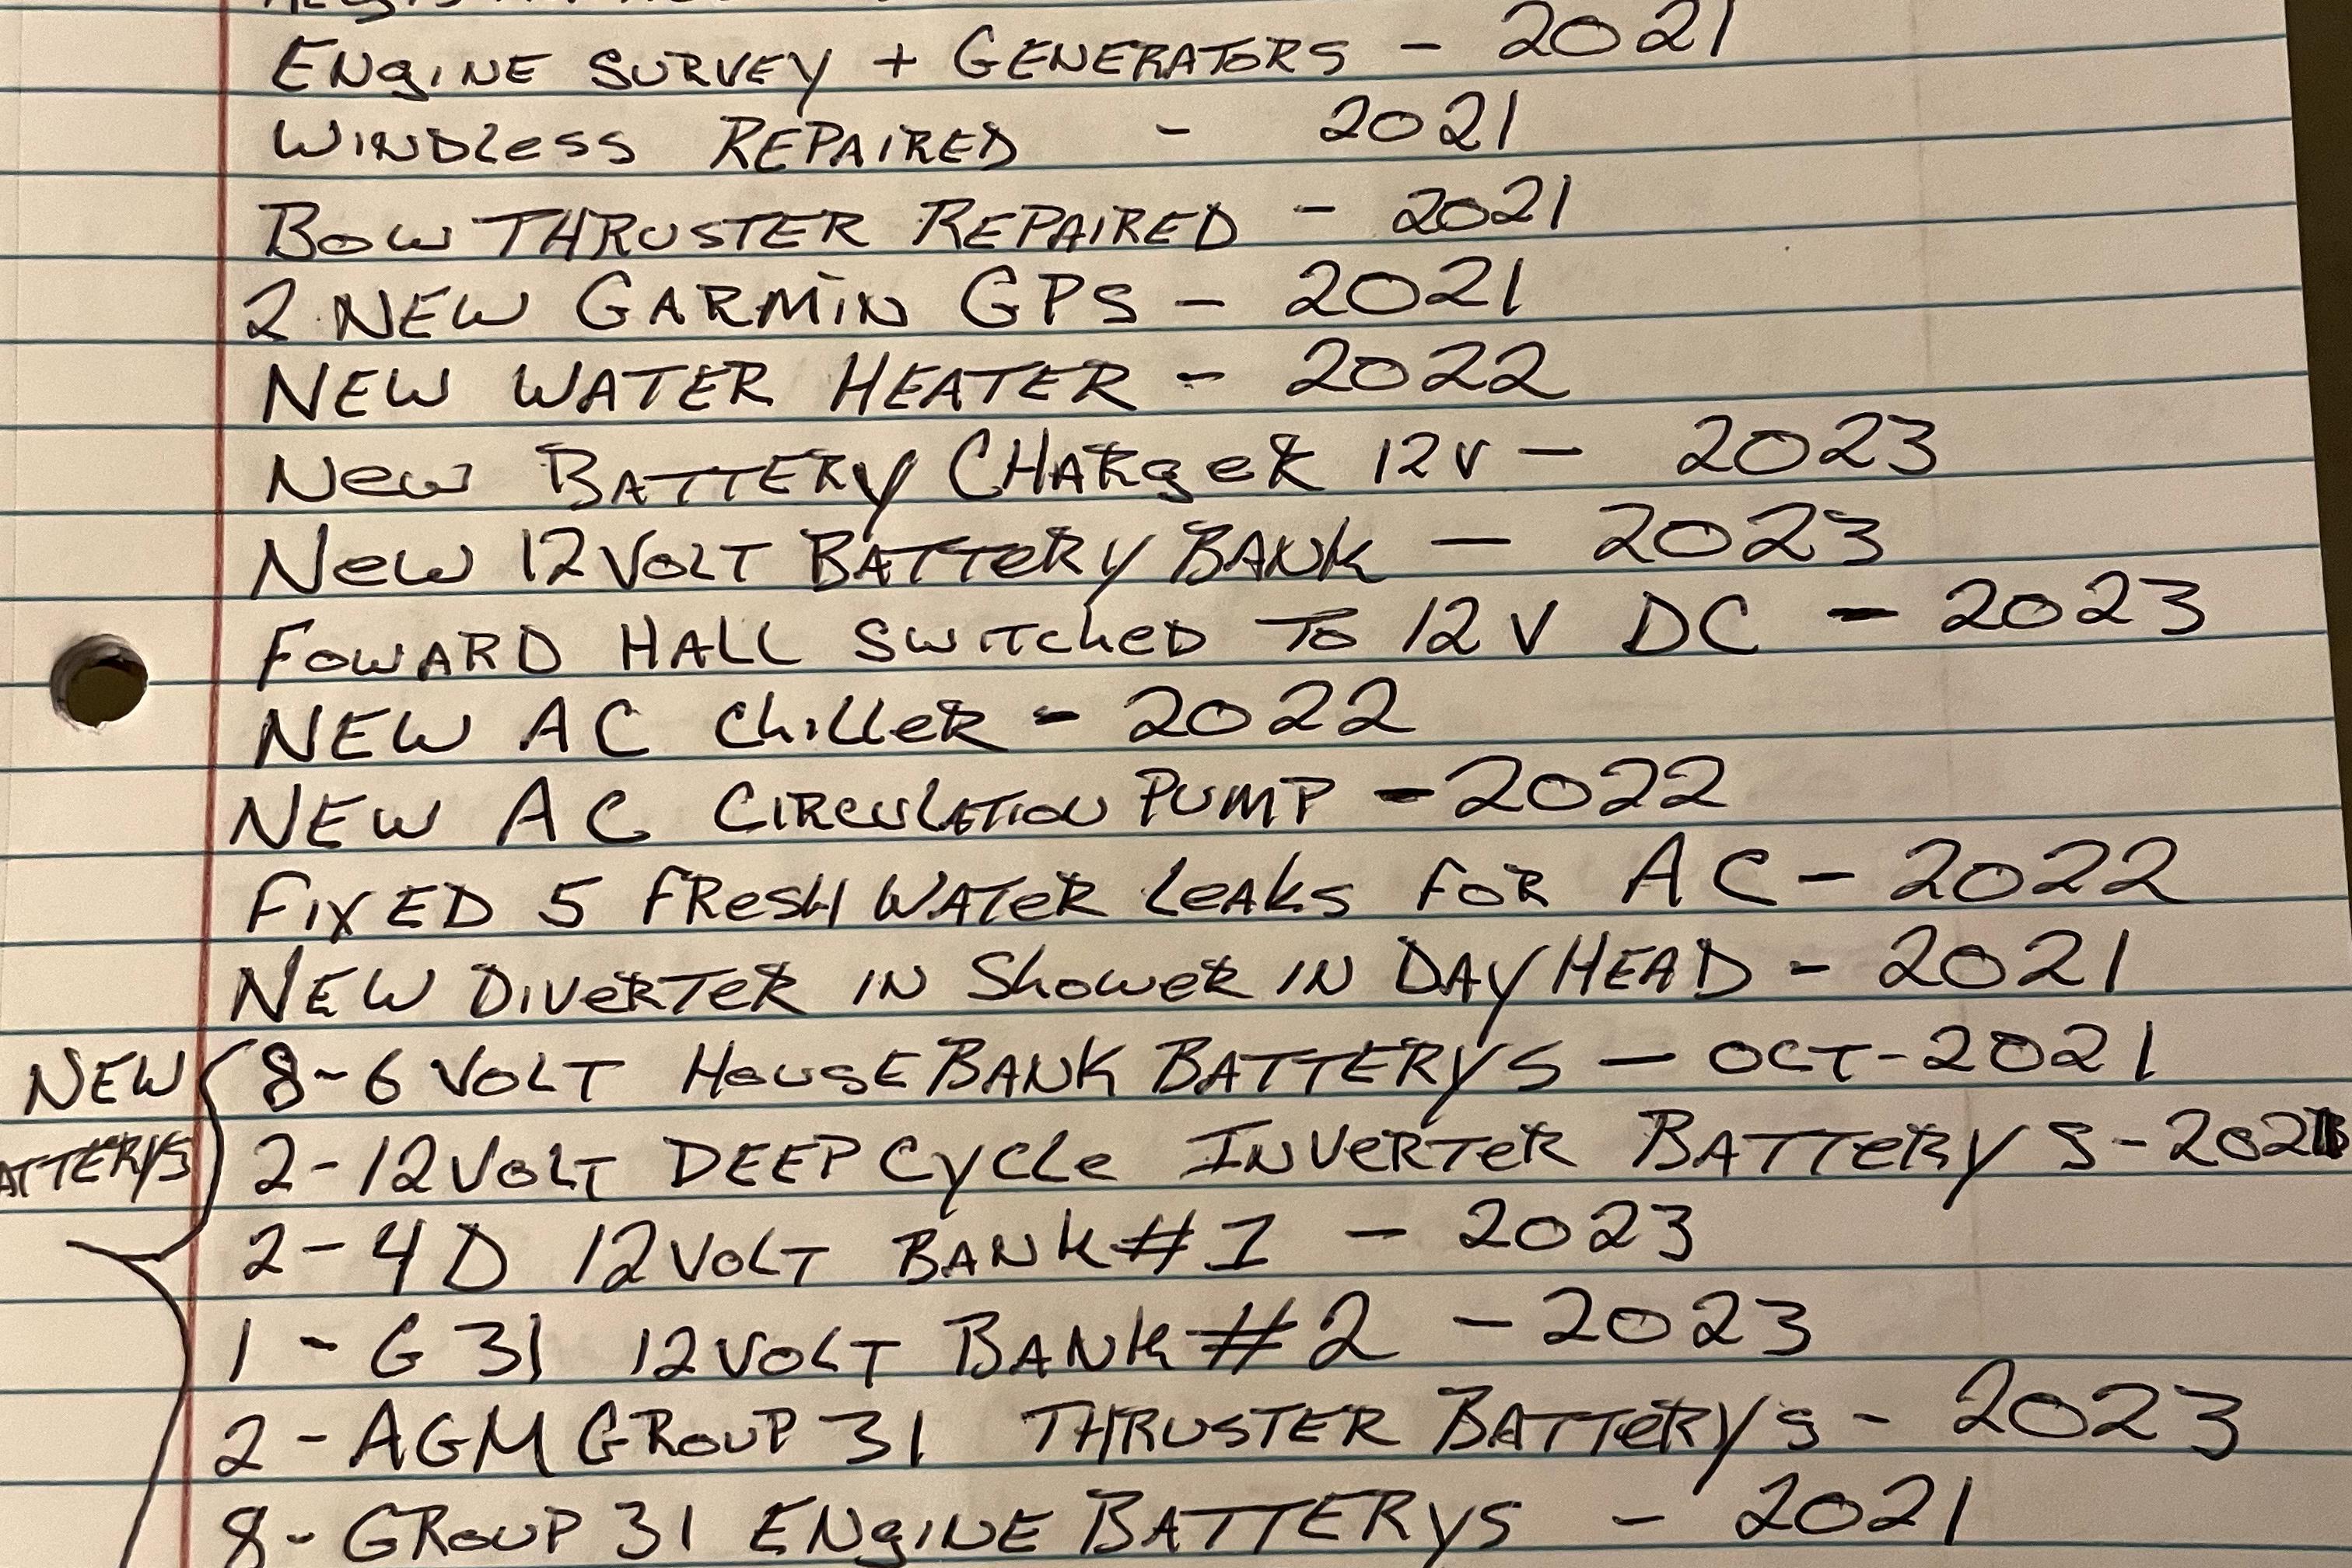 ENgINE SURVEY + GENERATORS - 2021
WINDLess REPAIRED - 2021
BOW THRUSTER REPAIRED - 2021
2 NEW GARMIN GPS - 2021
NEW WATER HEATER - 2022
New BATTERY CHARgeR 12V - 2023
New 12VOLT BATTeRY BANK - 2023
FOWARD HALL SWITCheD TO 12V DC - 2023
NEW AC ChilleR - 2022
NEW AC CIRCULATION PUMP - 2022
FIXED 5 FResH WATeR LeAks FOR AC - 2022
NEW DIVeRTeR IN ShoweR IN DAY HEAD - 2021
NEW
8-6 VOLT HOUSE BANK BATTERYS - OCT-2021
ATTERYS
2-12VOLT DEEP CYCLe INVeRTeR BATTeRYS-2021
2-4D 12VOLT BANK #1 - 2023
1-G31 12VOLT BANK #2 - 2023
2-AGM GROUP 31 THRUSTER BATTeRYS - 2023
8-GROUP 31 ENgINE BATTERYS - 2021